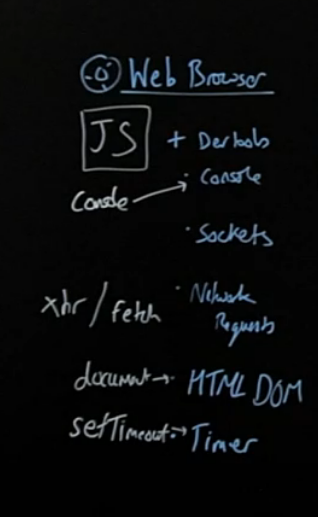 Web Browser
JS + Dev tools
Console → · Console
· Sockets
xhr / fetch · Network
Requests
document → · HTML DOM
setTimeout → Timer